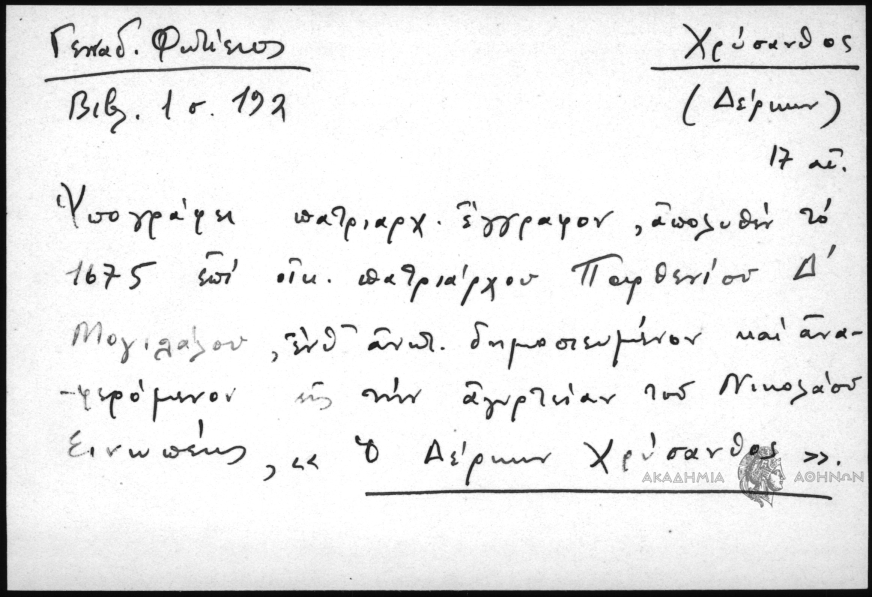 Γενναδ. Φωτίειος
Χρύσανθος
Βιβλ. 1 σ. 192
(Δέρκων)
17 αἰ.
Ὑπογράφει πατριαρχ. ἔγγραφον, ἀπολυθὲν τὸ
1675 ἐπὶ οἰκ. πατριάρχου Παρθενίου Δ΄
Μογιλάλου, ἔνθ᾽ ἀνωτ. δημοσιευμένον καὶ ἀνα-
-φερόμενον εἰς τὴν ἀγυρτείαν τοῦ Νικολάου
Σινωπέως, «ὁ Δέρκων Χρύσανθος».
ΑΚΑΔΗΜΙΑ ΑΘΗΝΩΝ